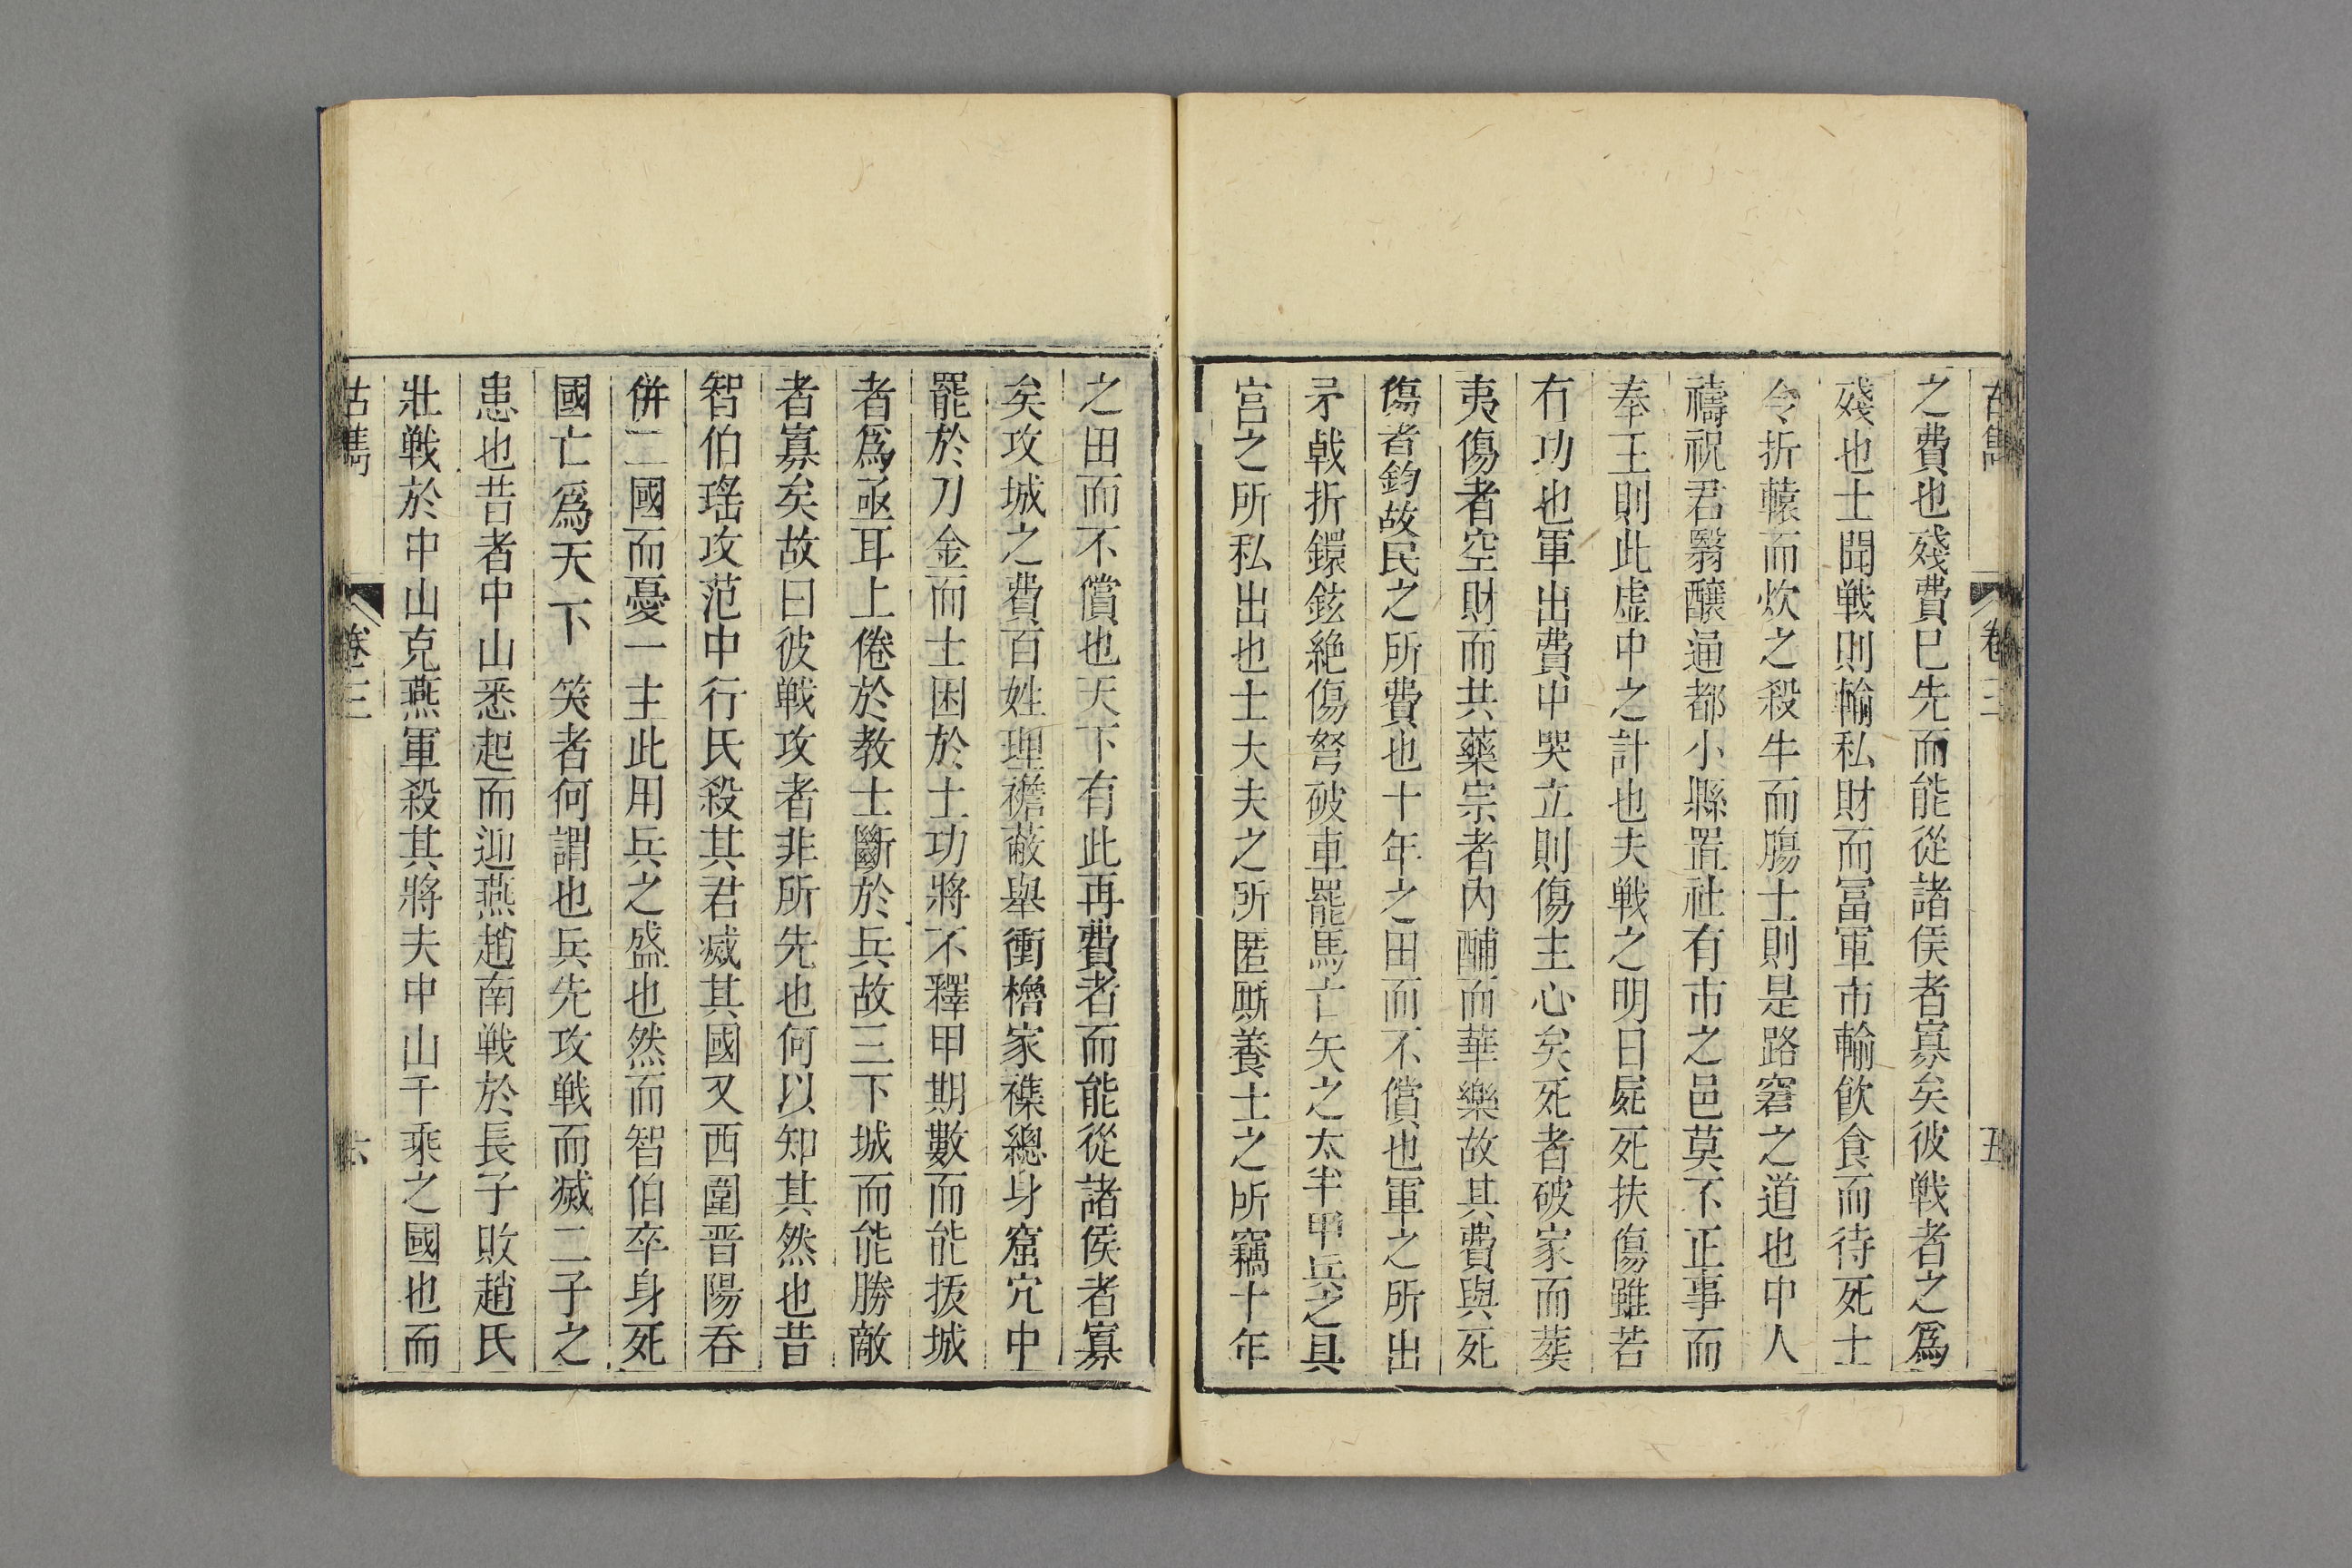 古雋
卷三
五
之費也殘費已先而能從諸侯者寡矣彼戦者之爲
殘也士聞戦則輸私財而冨軍市輸飲食而待死士
令折轅而炊之殺牛而觴士則是路窘之道也中人
禱祝君翳釀通都小縣置社有市之邑莫不正事而
奉王則此虚中之計也夫戦之明日屍死扶傷雖若
有功也軍出費中哭立則傷主心矣死者破家而葬
夷傷者空財而共藥宗者內酺而華樂故其費與死
傷者鈞故民之所費也十年之田而不償也軍之所出
矛戟折鐶鉉絶傷弩破車罷馬亡矢之太半甲兵之具
宫之所私出也士大夫之所匿厮養士之所竊十年
之田而不償也天下有此再費者而能從諸侯者寡
矣攻城之費百姓理襜蔽舉衝櫓家襍總身窟穴中
罷於刀金而士困於土功將不釋甲期數而能抜城
者爲亟耳上倦於教士斷於兵故三下城而能勝敵
者寡矣故曰彼戦攻者非所先也何以知其然也昔
智伯瑤攻范中行氏殺其君滅其國又西圍晋陽吞
併二國而憂一主此用兵之盛也然而智伯卒身死
國亡爲天下笑者何謂也兵先攻戦而滅二子之
患也昔者中山悉起而迎燕趙南戦於長子敗趙氏
壯戦於中山克燕軍殺其將夫中山千乘之國也而
古雋
卷三
六